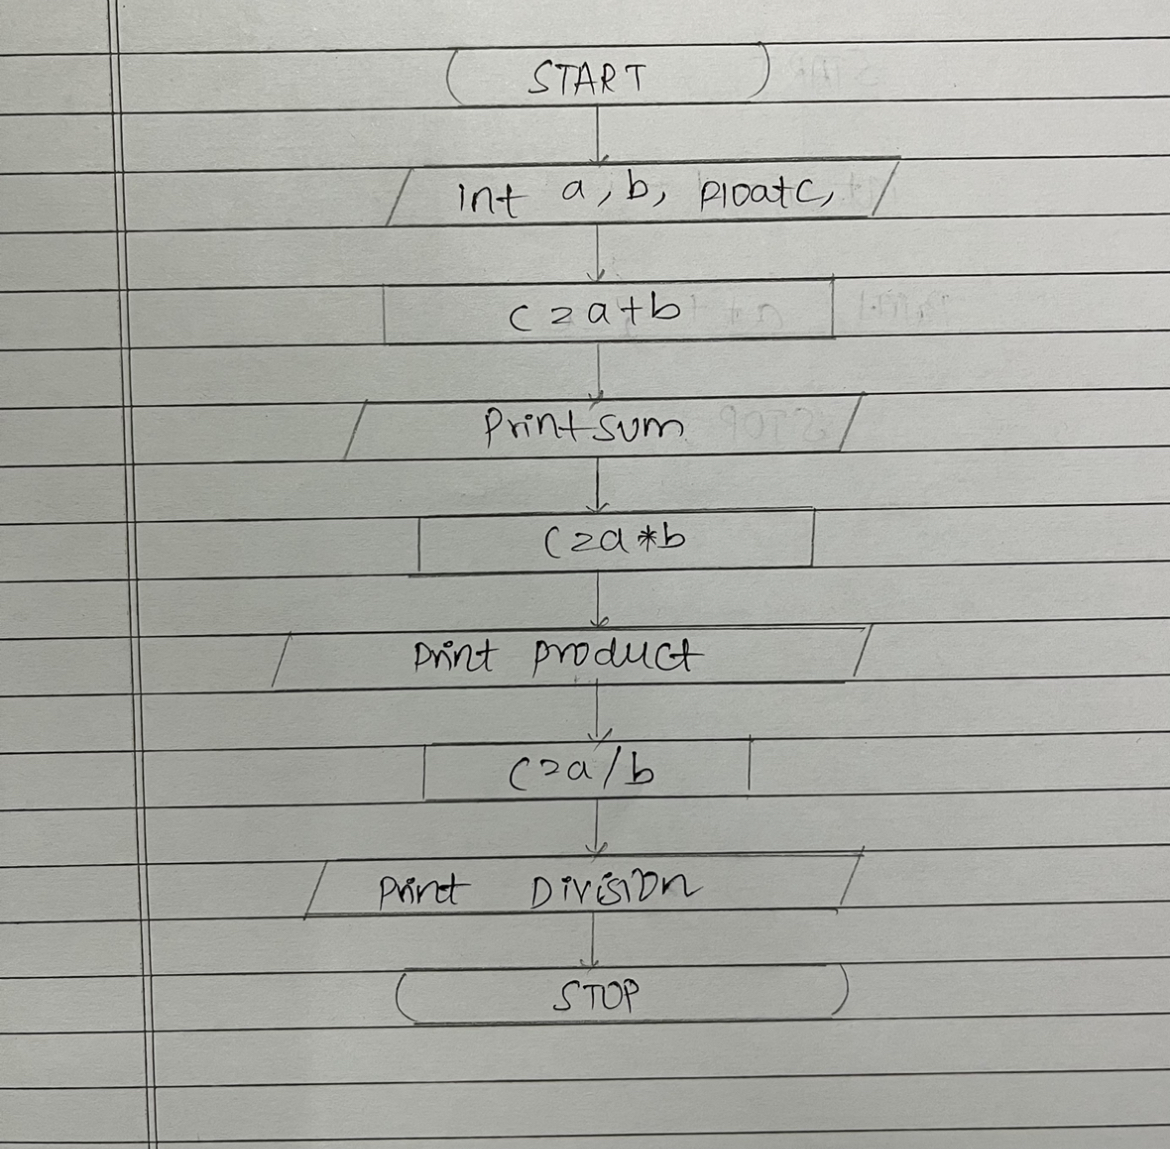 START
int a, b, float c,
c = a + b
Print sum
c = a * b
Print product
c = a / b
Print Division
STOP